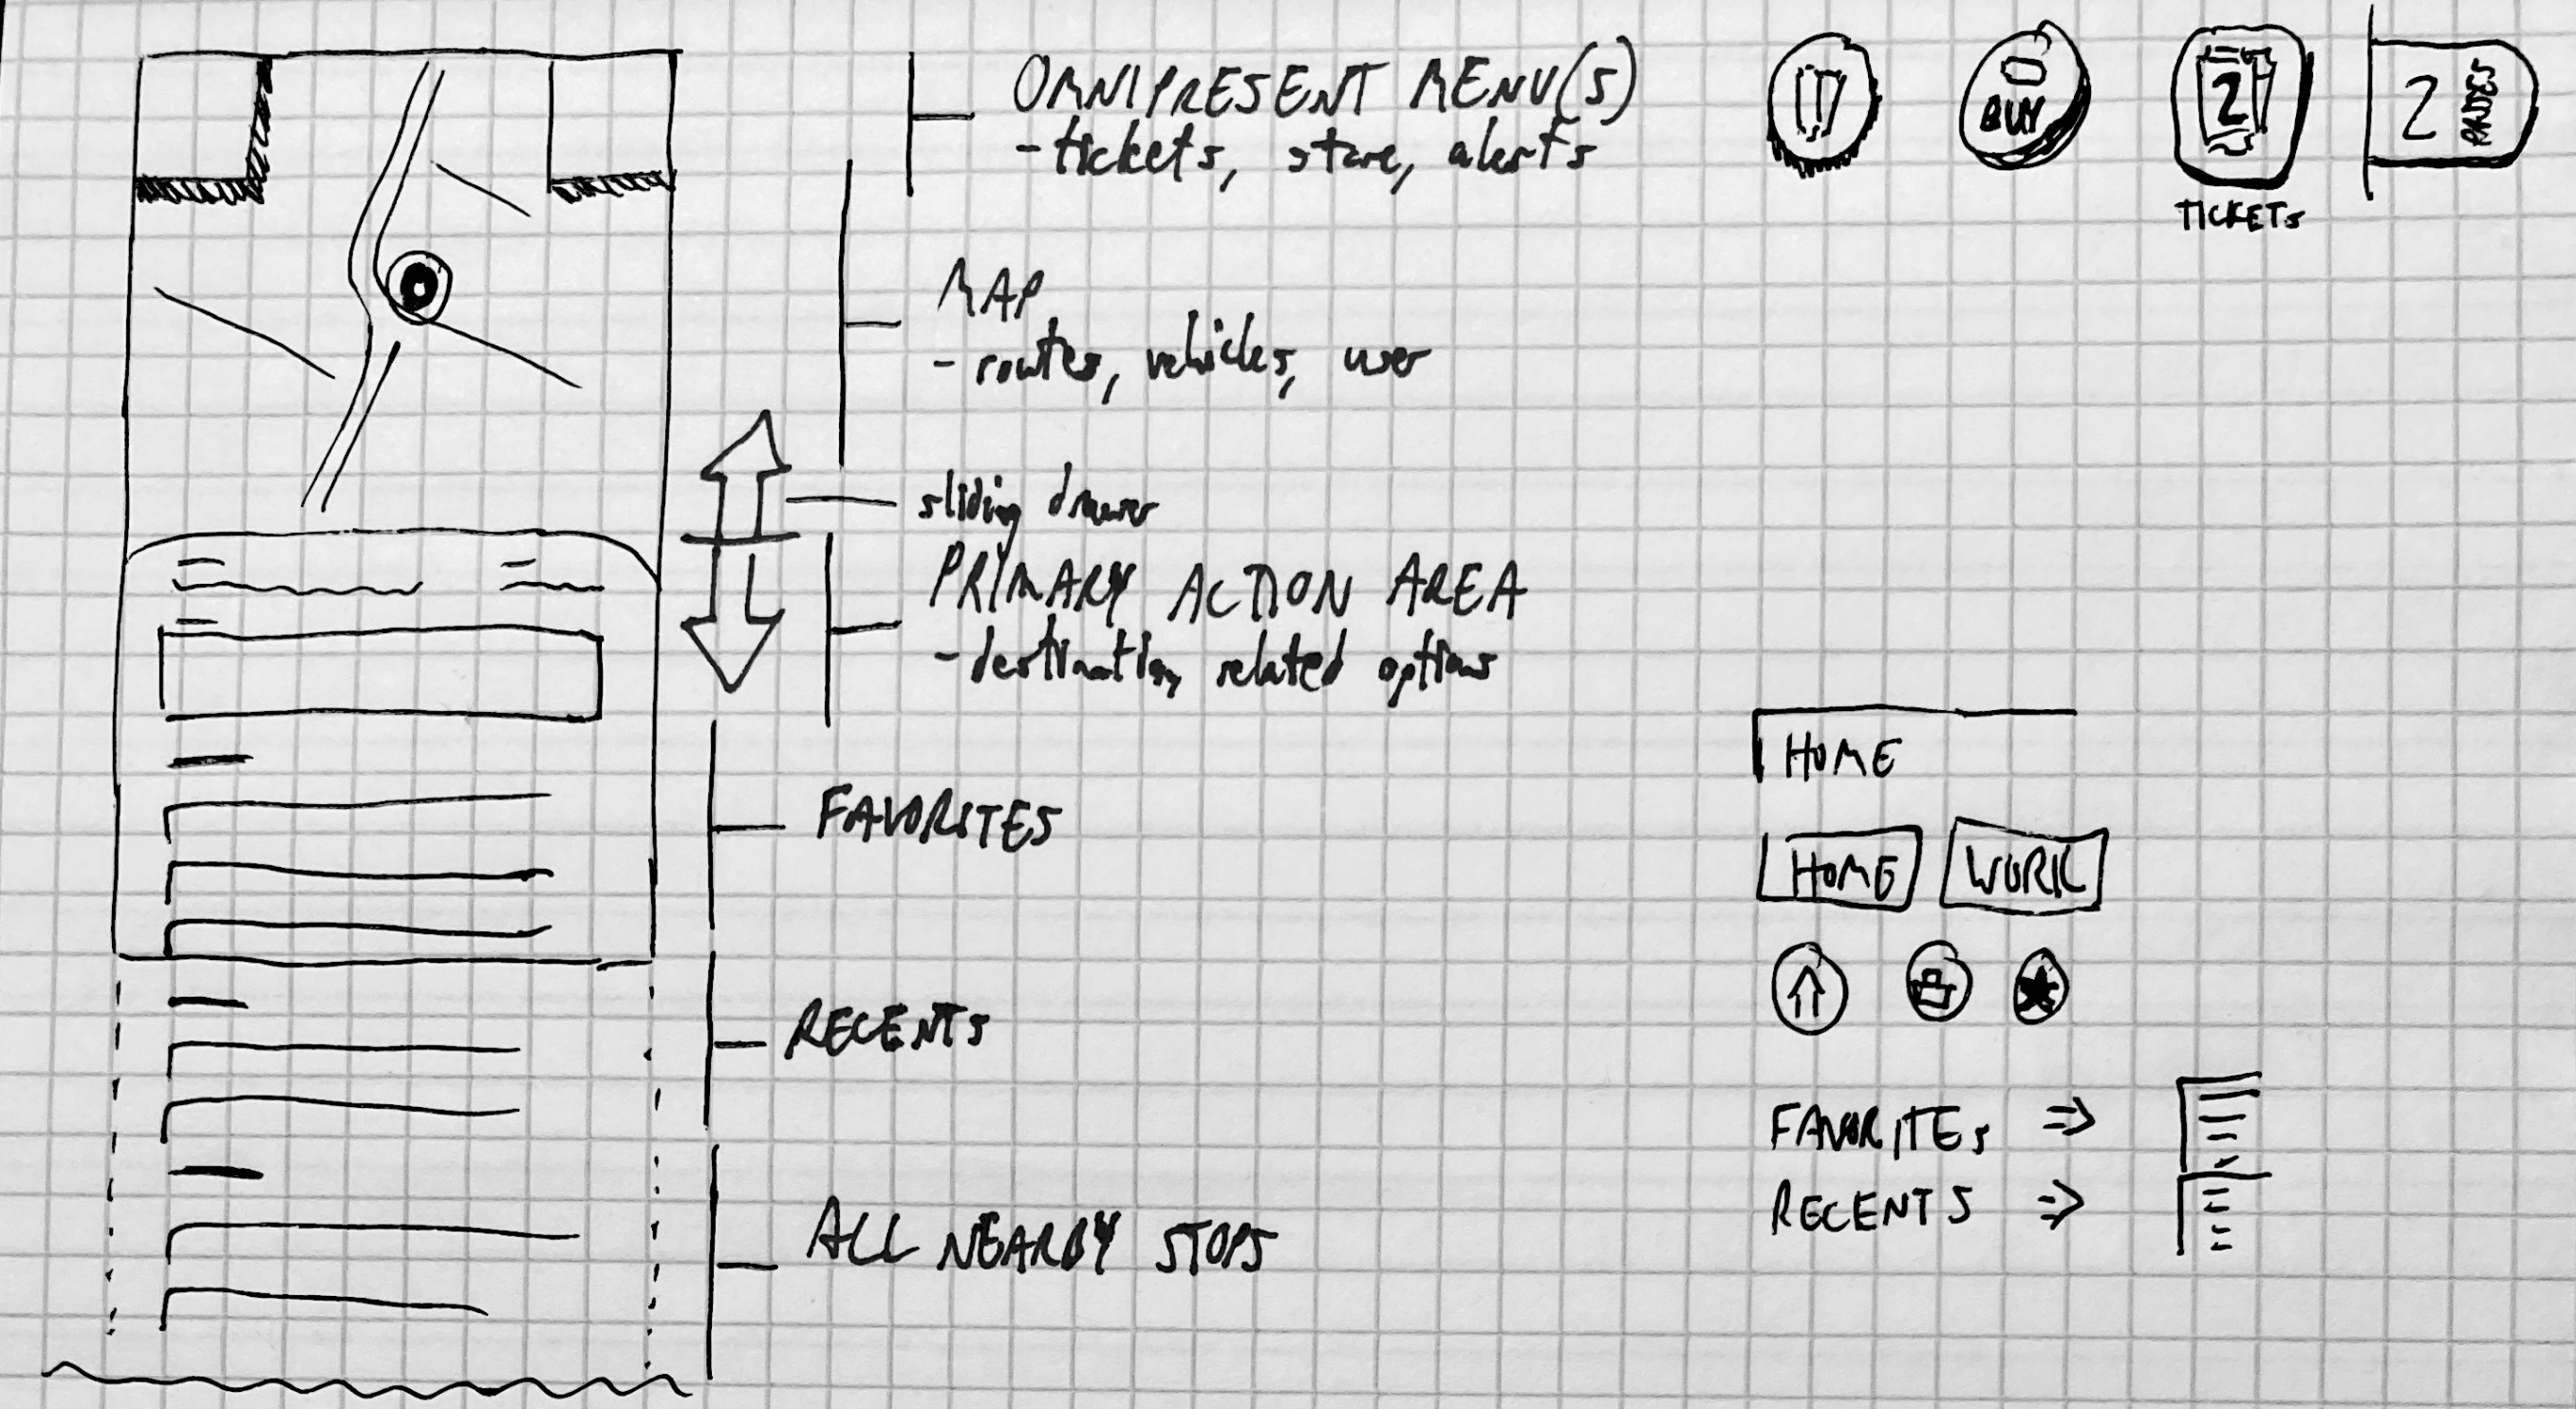 OMNIPRESENT MENU(S)
- tickets, store, alerts
MAP
- routes, vehicles, user
sliding drawer
PRIMARY ACTION AREA
- destination related options
FAVORITES
RECENTS
ALL NEARBY STOPS
BUY
2
TICKETS
2
HOME
HOME WORK
FAVORITES ⇒
RECENTS ⇒